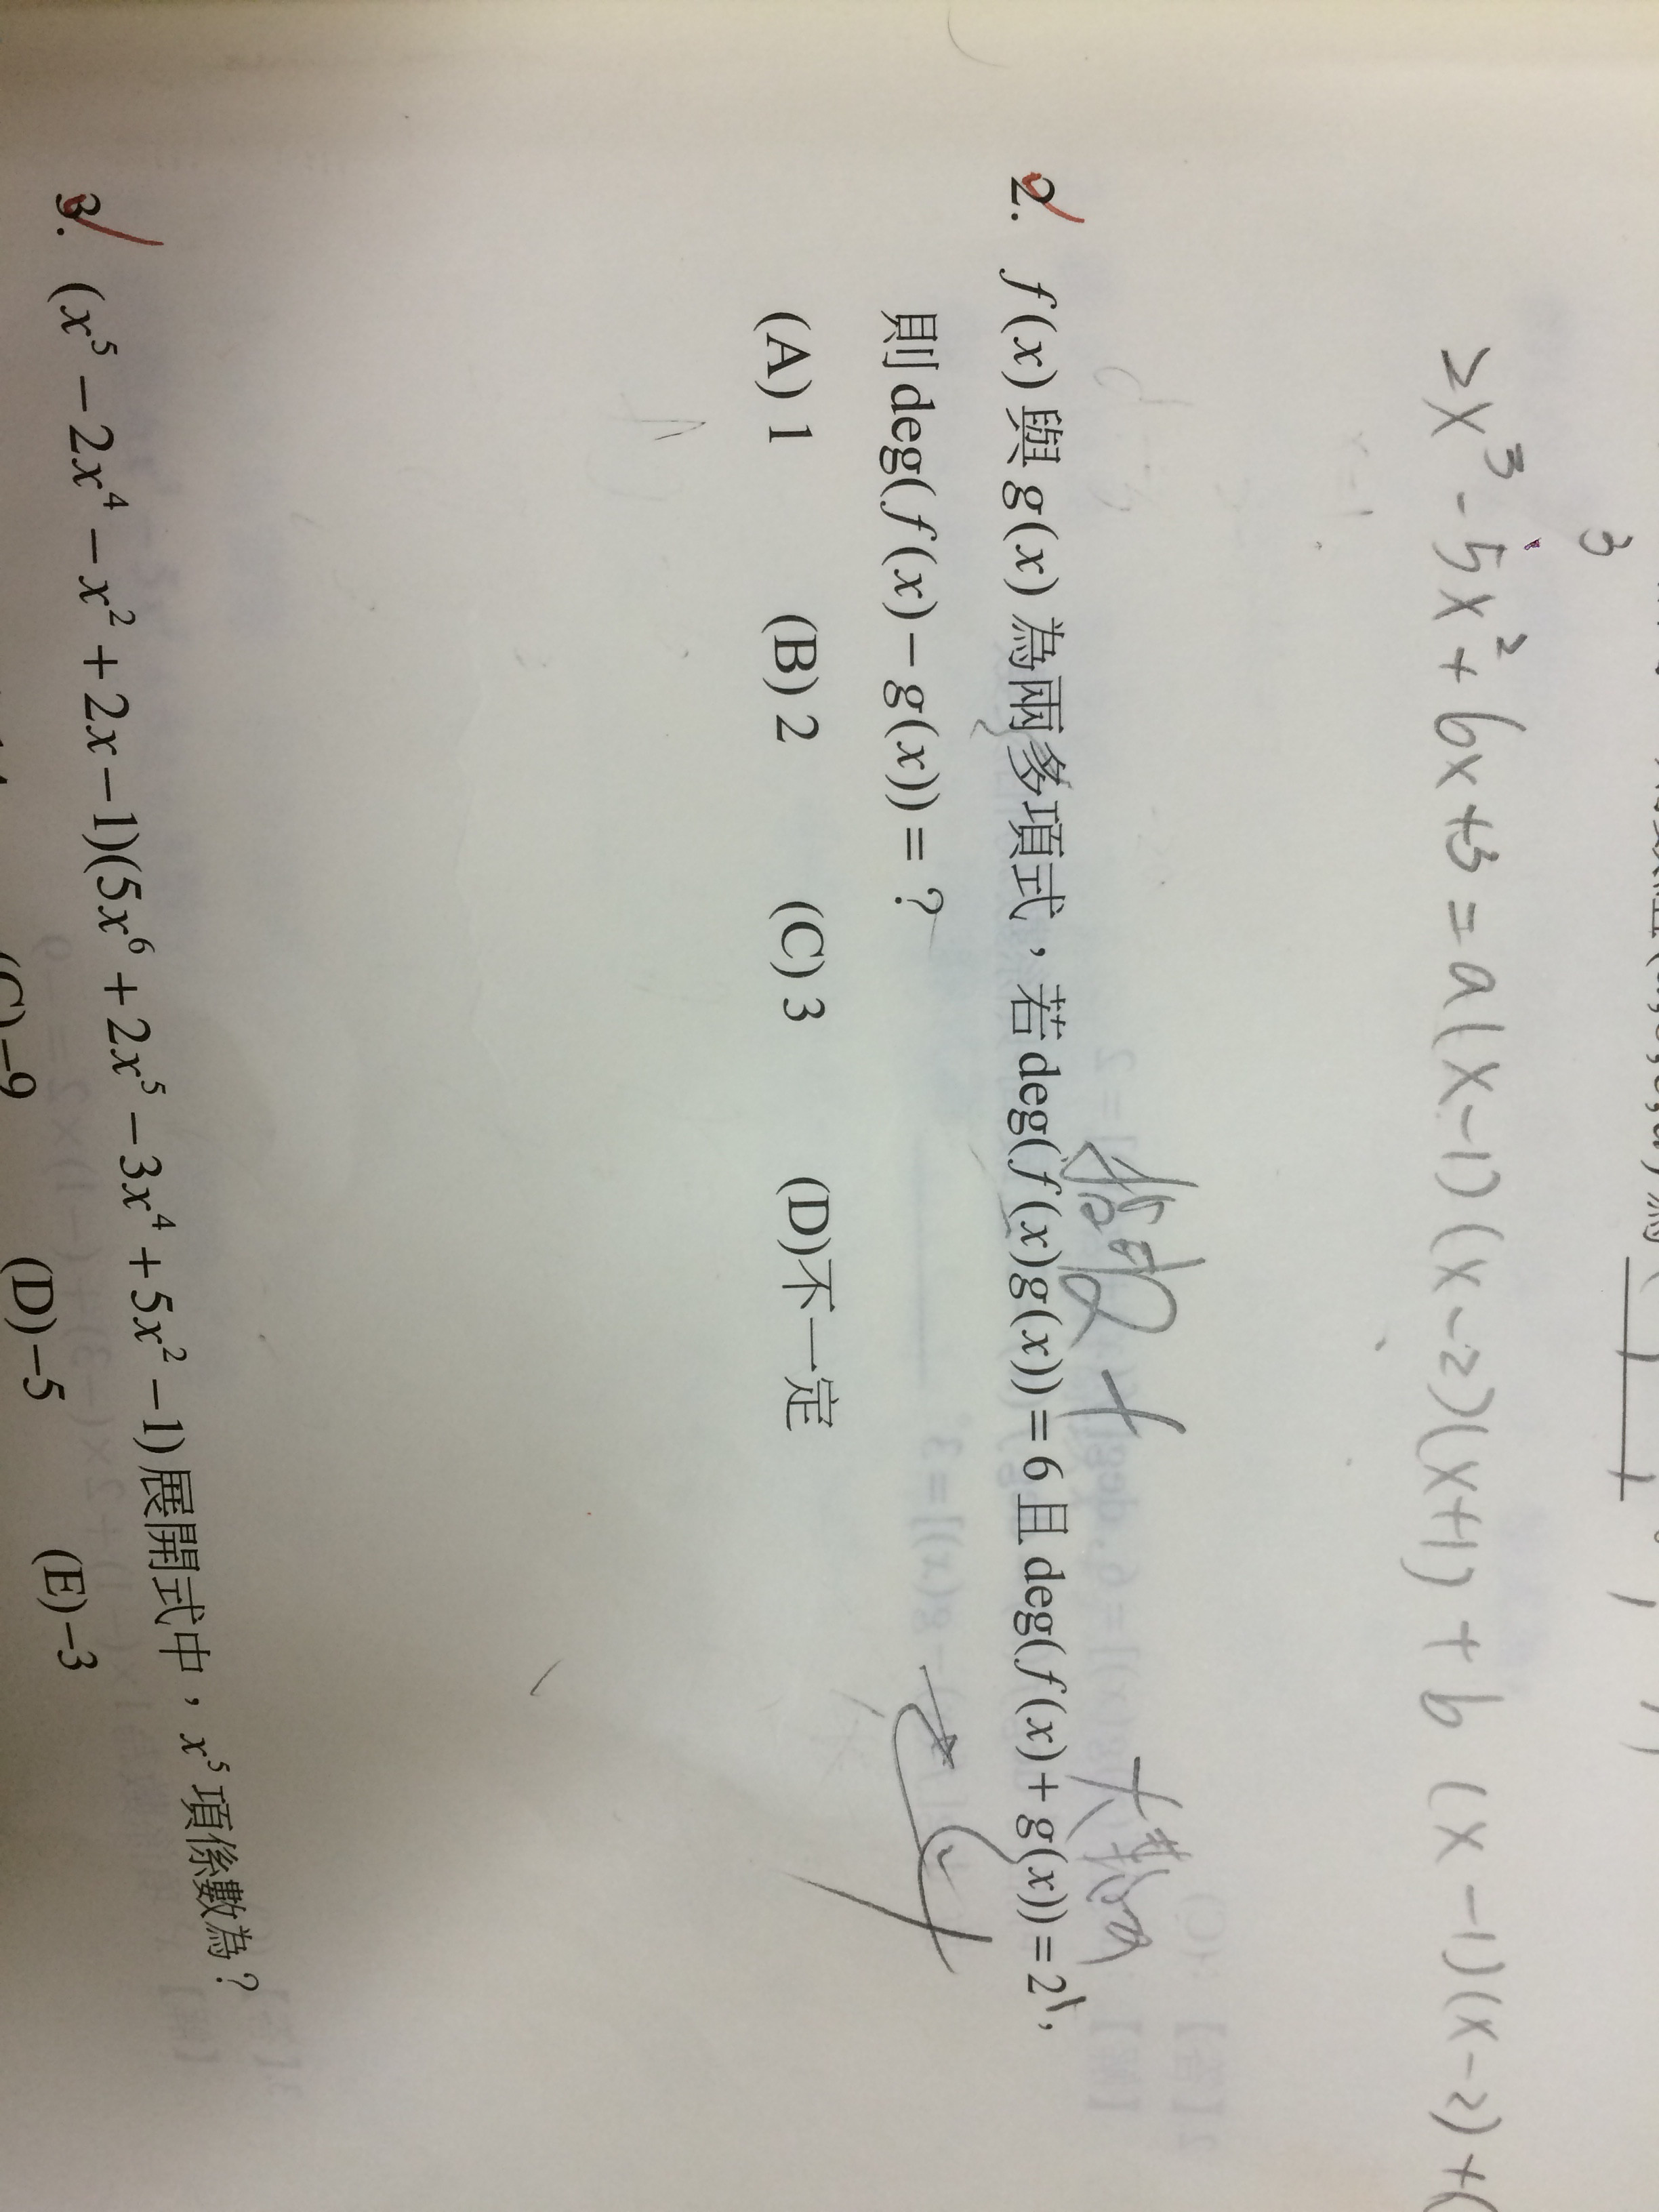 3
2x³-5x²+6x+3=a(x-1)(x-2)(x+1)+b(x-1)(x-2)+(
2. f(x)與g(x)為兩多項式，若deg(f(x)g(x))=6且deg(f(x)+g(x))=2，
則deg(f(x)-g(x))=？
(A)1 (B)2 (C)3 (D)不一定
3. (x⁵-2x⁴-x²+2x-1)(5x⁶+2x⁵-3x⁴+5x²-1)展開式中，x⁵項係數為？
(C)-9 (D)-5 (E)-3